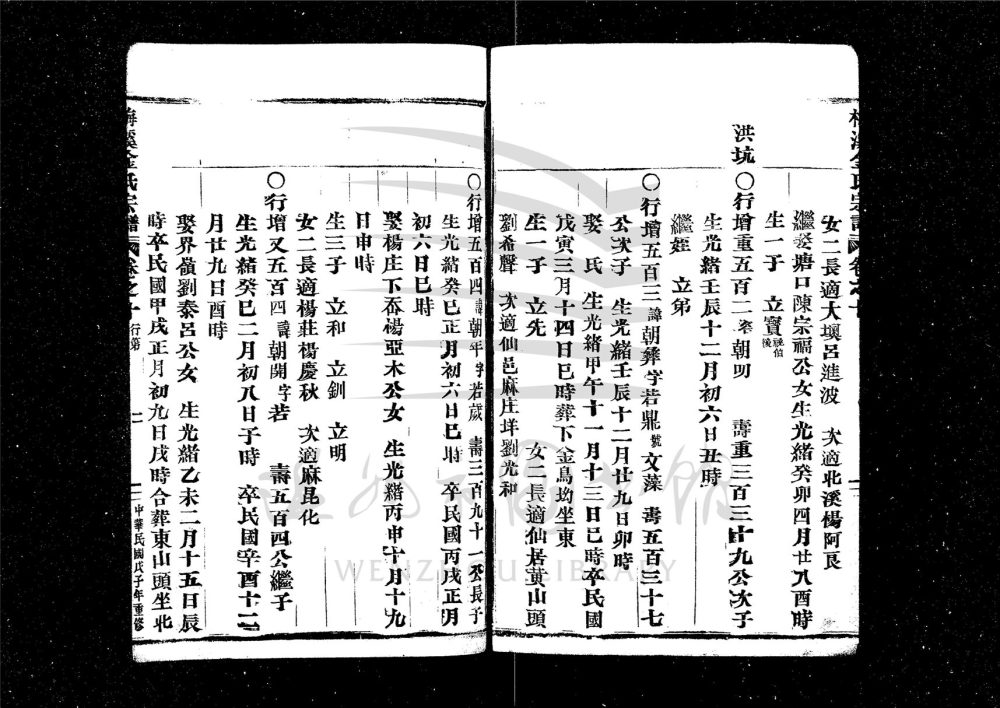 女二長適大㙃呂進波　次適北溪楊阿艮
繼娶塘口陳宗福公女生光緒癸卯四月廿八酉時
生一子　立寶祧伯後
洪坑　〇行增重五百二諱朝明　壽重三百三十九公次子
生光緒壬辰十二月初六日丑時
繼姪　立第
〇行增五百三諱朝彝字若鼎號文藻　壽五百三十七
公次子　生光緒壬辰十二月廿九日卯時
娶　氏　生光緒甲午十一月十三日巳時卒民國
戊寅三月十四日巳時葬下金鳥坳坐東
生一子　立先　女二長適仙居黃山頭
劉希聲　次適仙邑麻庄垟劉光和
梅溪金氏宗譜　卷之十
〇行增五百四諱朝年字若歲　壽三百九十一公長子
生光緒癸巳正月初六日巳時　卒民國丙戌正月
初六日巳時
娶楊庄下岙楊亞木公女　生光緒丙申十月十九
日申時
生三子　立和　立釧　立明
女二長適楊莊楊慶秋　次適麻昆化
〇行增又五百四諱朝開字若　壽五百四公繼子
生光緒癸巳二月初八日子時　卒民國辛酉十二
月廿九日酉時
娶界嶺劉泰呂公女　生光緒乙未二月十五日辰
時卒民國甲戌正月初九日戌時合葬東山頭坐北
梅溪金氏宗譜　卷之十　行第　二　中華民國戊子年重修
WENZHOU LIBRARY